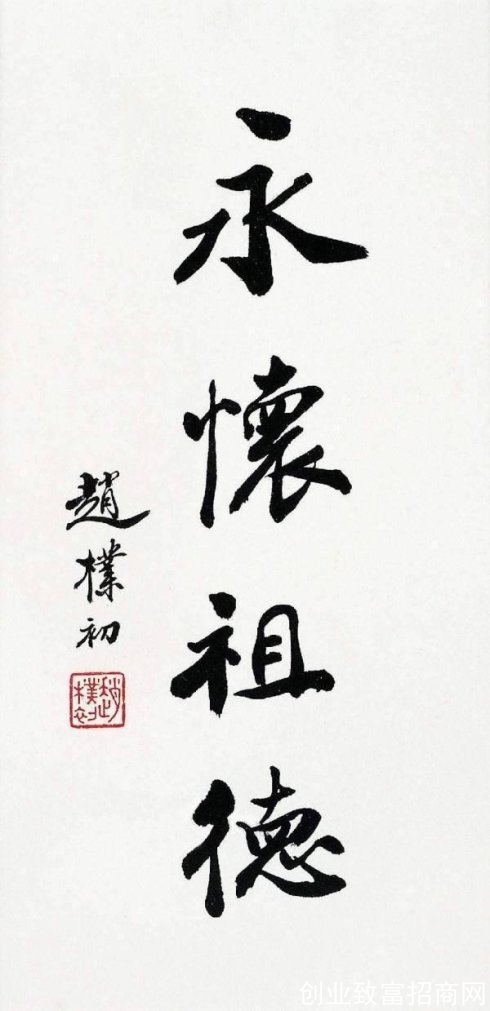 永懷祖德
趙樸初
趙樸初
创业致富招商网